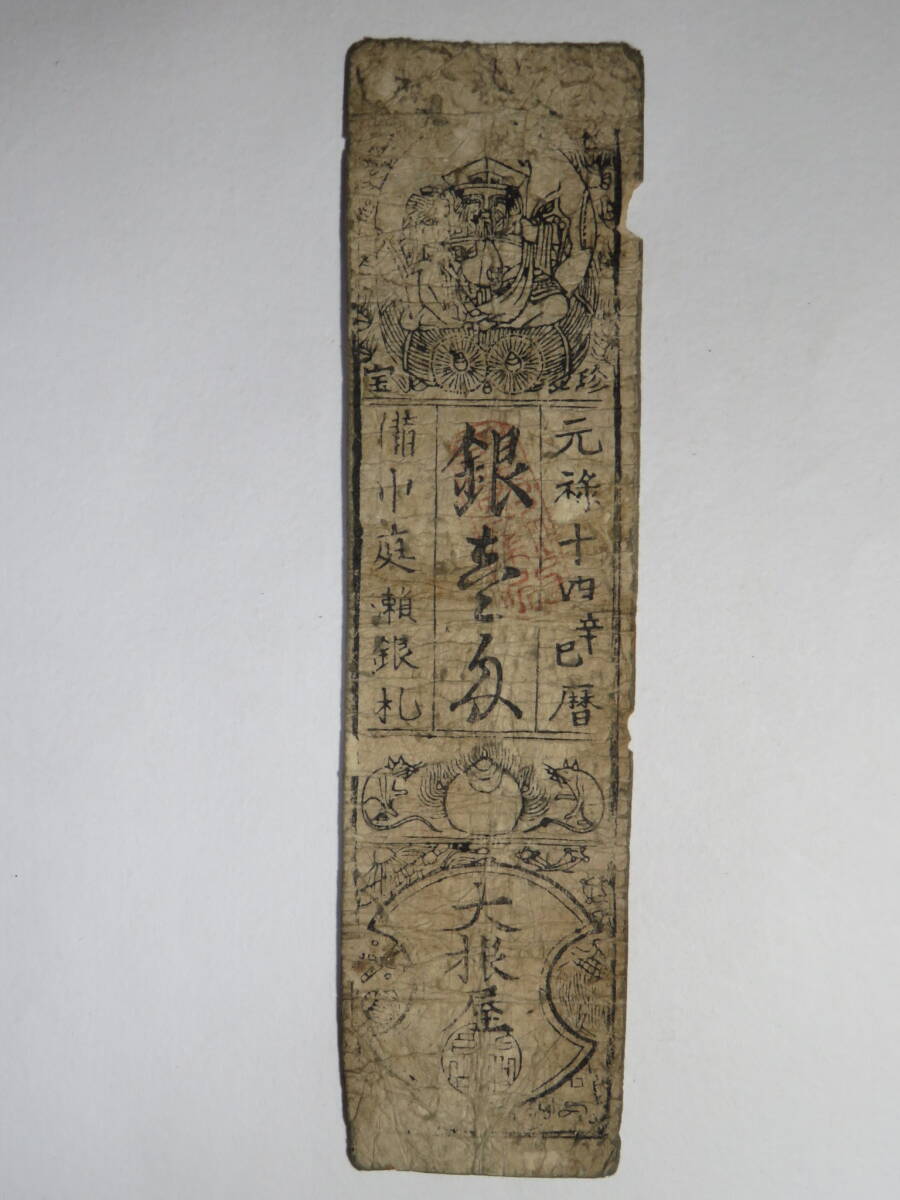 珍宝
元祿十四辛巳暦
銀壹匁
備中庭瀬銀札
大根屋